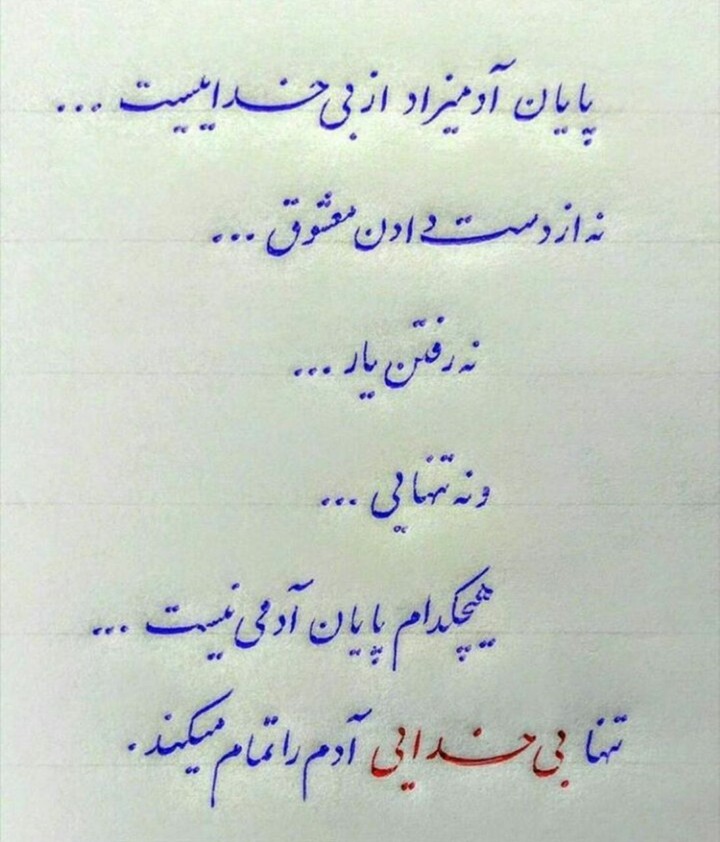 پایان آدمیزاد از بی خداییست ...
نه از دست دادن معشوق ...
نه رفتن یار ...
و نه تنهایی ...
هیچکدام پایان آدمی نیست ...
تنها بی خدایی آدم را تمام میکند.